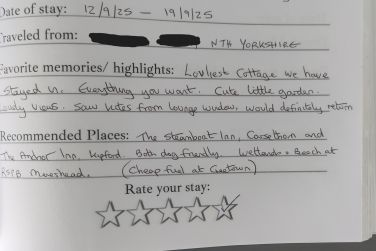 Date of stay: 12/9/25 — 19/9/25
Traveled from: NTH YORKSHIRE
Favorite memories/ highlights: Lovliest Cottage we have
stayed in. Everything you want. Cute little garden.
Lovely views. Saw kites from lounge window, would definitely return
Recommended Places: The Steamboat Inn, Carsethorn and
The Anchor Inn, Kipford. Both dog friendly. Wetlands + Beach at
RSPB Mersehead. (Cheap fuel at Creetown)
Rate your stay: